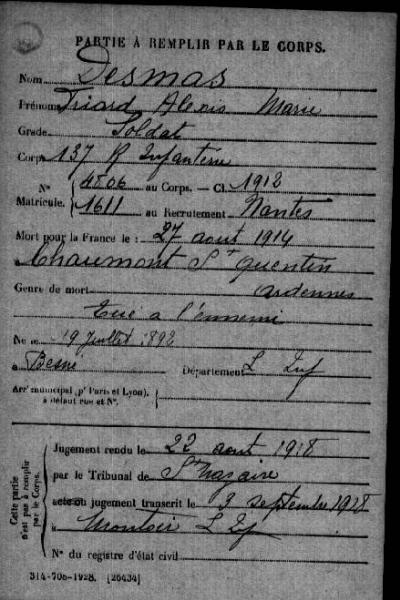 PARTIE À REMPLIR PAR LE CORPS.
Nom Desmas
Prénoms Triard Alexis Marie
Grade Soldat
Corps 137 R Infanterie
N° 4806 au Corps. — Cl. 1912
Matricule. 1611 au Recrutement Nantes
Mort pour la France le : 27 aout 1914
à Chaumont St Quentin
Genre de mort ardennes
Tué a l'ennemi
Né le 19 Juillet 1892
à Besné Département L Inf
Arrt municipal (pr Paris et Lyon),
à défaut rue et N°.
Cette partie
n'est pas à remplir
par le Corps.
Jugement rendu le 22 aout 1918
par le Tribunal de St Nazaire
acte ou jugement transcrit le 3 septembre 1918
à Montoir L Inf
N° du registre d'état civil
314-708-1928. [26434]